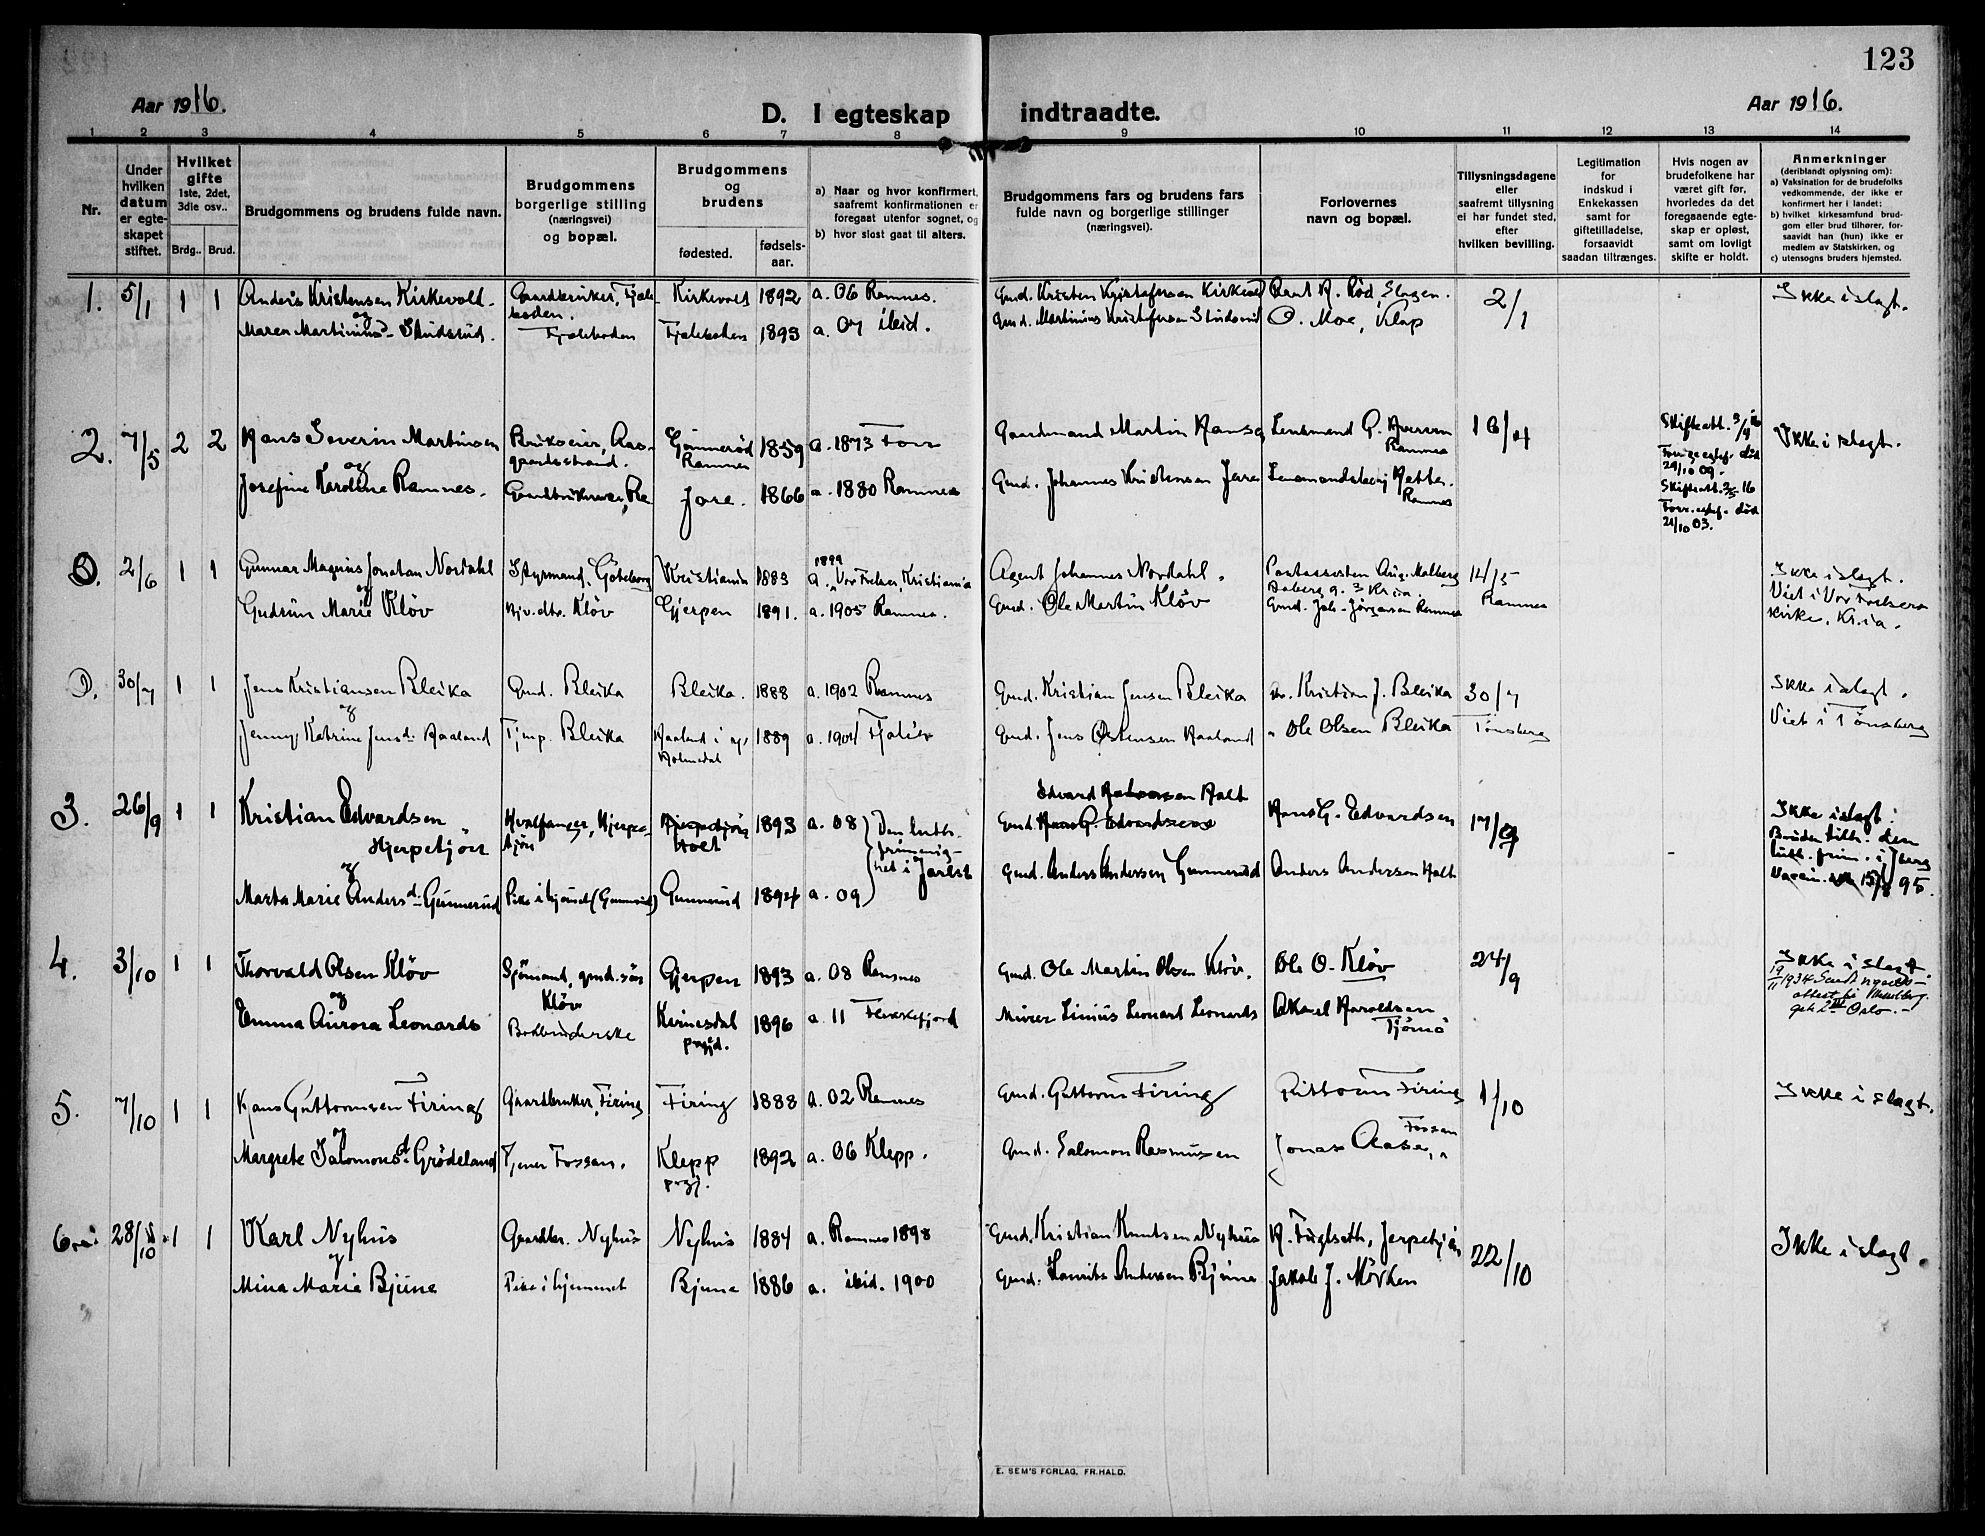 123
Aar 1916.
D. I egteskap indtraadte.
Aar 1916.
1 2 3 4 5 6 7 8 9 10 11 12 13 14
Nr.
Under hvilken datum er egteskapet stiftet.
Hvilket gifte 1ste, 2det, 3die osv..
Brdg.. Brud.
Brudgommens og brudens fulde navn.
Brudgommens borgerlige stilling (næringsvei) og bopæl.
Brudgommens og brudens
fødested. fødselsaar.
a) Naar og hvor konfirmert, saafremt konfirmationen er foregaat utenfor sognet, og
b) hvor sidst gaat til alters.
Brudgommens fars og brudens fars fulde navn og borgerlige stillinger (næringsvei).
Forlovernes navn og bopæl.
Tillysningsdagene eller saafremt tillysning ei har fundet sted, efter hvilken bevilling.
Legitimation for indskud i Enkekassen samt for giftetilladelse, forsaavidt saadan tiltrænges.
Hvis nogen av brudefolkene har været gift før, hvorledes da det foregaaende egteskap er opløst, samt om lovligt skifte er holdt.
Anmerkninger (deriblandt oplysning om):
a) Vaksination for de brudefolks vedkommende, der ikke er konfirmert her i landet;
b) hvilket kirkesamfund brudgom eller brud tilhører, forsaavidt han (hun) ikke er medlem av Statskirken, og
c) utensogns bruders hjemsted.
1. 5/1 1 1 Anders Kristensen Kirkevold Gaardbruker, Kirkevold 1892 a. 06 Ramnes. Gmd. Kristen Kristofersen Rød, Slagen. 2/1 Ikke i slagt.
og
Maren Martinius d. Studsrud. 1893 a. 07 ibid. Gmd. Martinius Kristofersen Studsrud O. Moe, Klop
2. 7/5 2 2 Hans Severin Martinsen Brukseier, Aasgaardsstrand. Gønnerød Ramnes 1859 a. 1873 Gaardmand Martin Hansen Lensmand Ramnes 16/4 Skifteatt. Ikke i slagt.
og
Josefine Karoline Ramnes. Jore. 1866 a. 1880 Ramnes Gmd. Johannes Kristensen Jore Ramnes
Forrige egtef. død 29/10 09.
Skifteatt. 16
Forr. egtef. død 21/10 03.
2/6 1 1 Gunnar Magnus Jonatan Nordahl Styrmand, Göteborg Kristiania 1883 1899 a. Vor Frelser, Kristiania Agent Johannes Nordahl. Postassistent Aug. Malberg 14/5 Ramnes Ikke i slagt.
og
Gudrun Marie Kløv Kløv Gjerpen 1891. a. 1905 Ramnes. Gmd. Ole Martin Kløv Gmd. Joh. Jørgensen Ramnes Viet i Vor Frelsers kirke, Kr.ia.
30/7 1 1 Jens Kristiansen Bleika Gmd. Bleika Bleika. 1888 a. 1902 Ramnes Gmd. Kristian Jensen Bleika Kristian J. Bleika 30/7 Ikke i slagt.
og
Jenny Katrine Jens d. Haaland Bleika Haaland i 1889 a. 1904 Gmd. Jens Østensen Haaland Ole Olsen Bleika Tønsberg Viet i Tønsberg
3. 26/9 1 1 Kristian Edvardsen Hjerpetjön Hvalfanger, Hjerpetjön Holt 1893 a. 08 Den luth. frimenighet i Jarlsb. Edvard Halvorsen Holt Hans G. Edvardsen 17/9 Ikke i slagt.
og
Marta Marie Anders d. Gunnerud Pike i hjemmet (Gunnerud) Gunnerud 1894 a. 09 Gmd. Anders Andersen Gunnerud Anders Andersen Holt Bruden tilh. den luth. frim. i Jberg Vaccin. 15/8 95.
4. 3/10 1 1 Thorvald Olsen Kløv Sjømand, gmd.søn Kløv Gjerpen 1893 a. 08 Ramnes Gmd. Ole Martin Olsen Kløv. Ole O. Kløv 24/9 Ikke i slagt.
og
Emma Aurora Leonards Bokbinderske Kvinesdal prgjd. 1896 a. 11 Flekkefjord Murer Linius Leonard Leonards Aksel Haroldsen Tjømø 19/11 1934 Sendt attest Oslo.
5. 7/10 1 1 Hans Guttormsen Firing Gaardbruker, Firing Firing 1888 a. 02 Ramnes Gmd. Guttorm Firing Guttorm Firing 1/10 Ikke i slagt.
og
Margrete Salomons d. Grødeland Tjener Fossan. Klepp prgj. 1892 a. 06 Klepp. Gmd. Salomon Rasmussen Jonas Aase, Fossan
6. 28/10 1 1 Karl Nyhus Gaardbr. Nyhus Nyhus 1884 a. Ramnes 1898 Gmd. Kristian Knutsen Nyhus H. Fuglseth, Jerpetjön 22/10 Ikke i slagt.
og
Mina Marie Bjune Pike i hjemmet Bjune 1886 a. ibid. 1900 Gmd. Andersen Bjune Jakob J. Mørken
E. SEM'S FORLAG, FR.HALD.